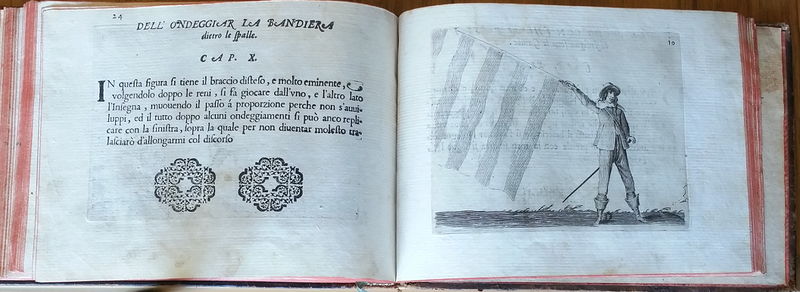 24
DELL' ONDEGGIAR LA BANDIERA
dietro le ſpalle.
CAP. X.
IN queſta figura ſi tiene il braccio diſteſo, e molto eminente, e
volgendolo doppo le reni, ſi fa giocare dall'vno, e l'altro lato
l'Inſegna, mouendo il paſſo á proporzione perche non s'auui-
luppi, ed il tutto doppo alcuni ondeggiamenti ſi può anco repli-
care con la ſiniſtra, ſopra la quale per non diuentar moleſto tra-
laſciarò d'allongarmi col diſcorſo
10